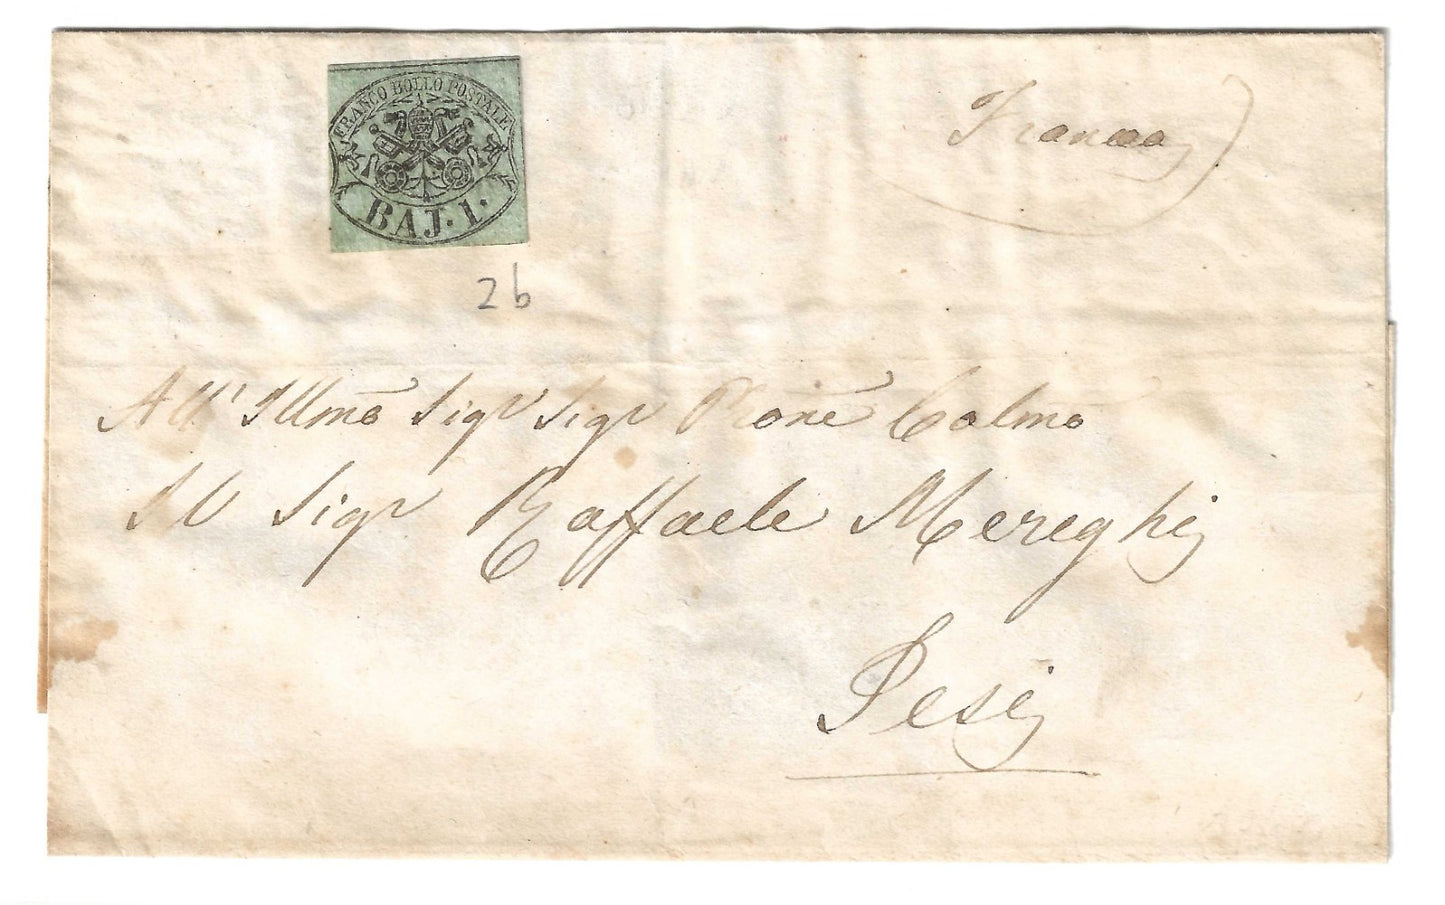 FRANCO BOLLO POSTALE
BAJ. 1.
Franca
2b
All' Illmo Sigr Sigr Prone Colmo
Il Sigr Raffaele Mereghi
Jesi